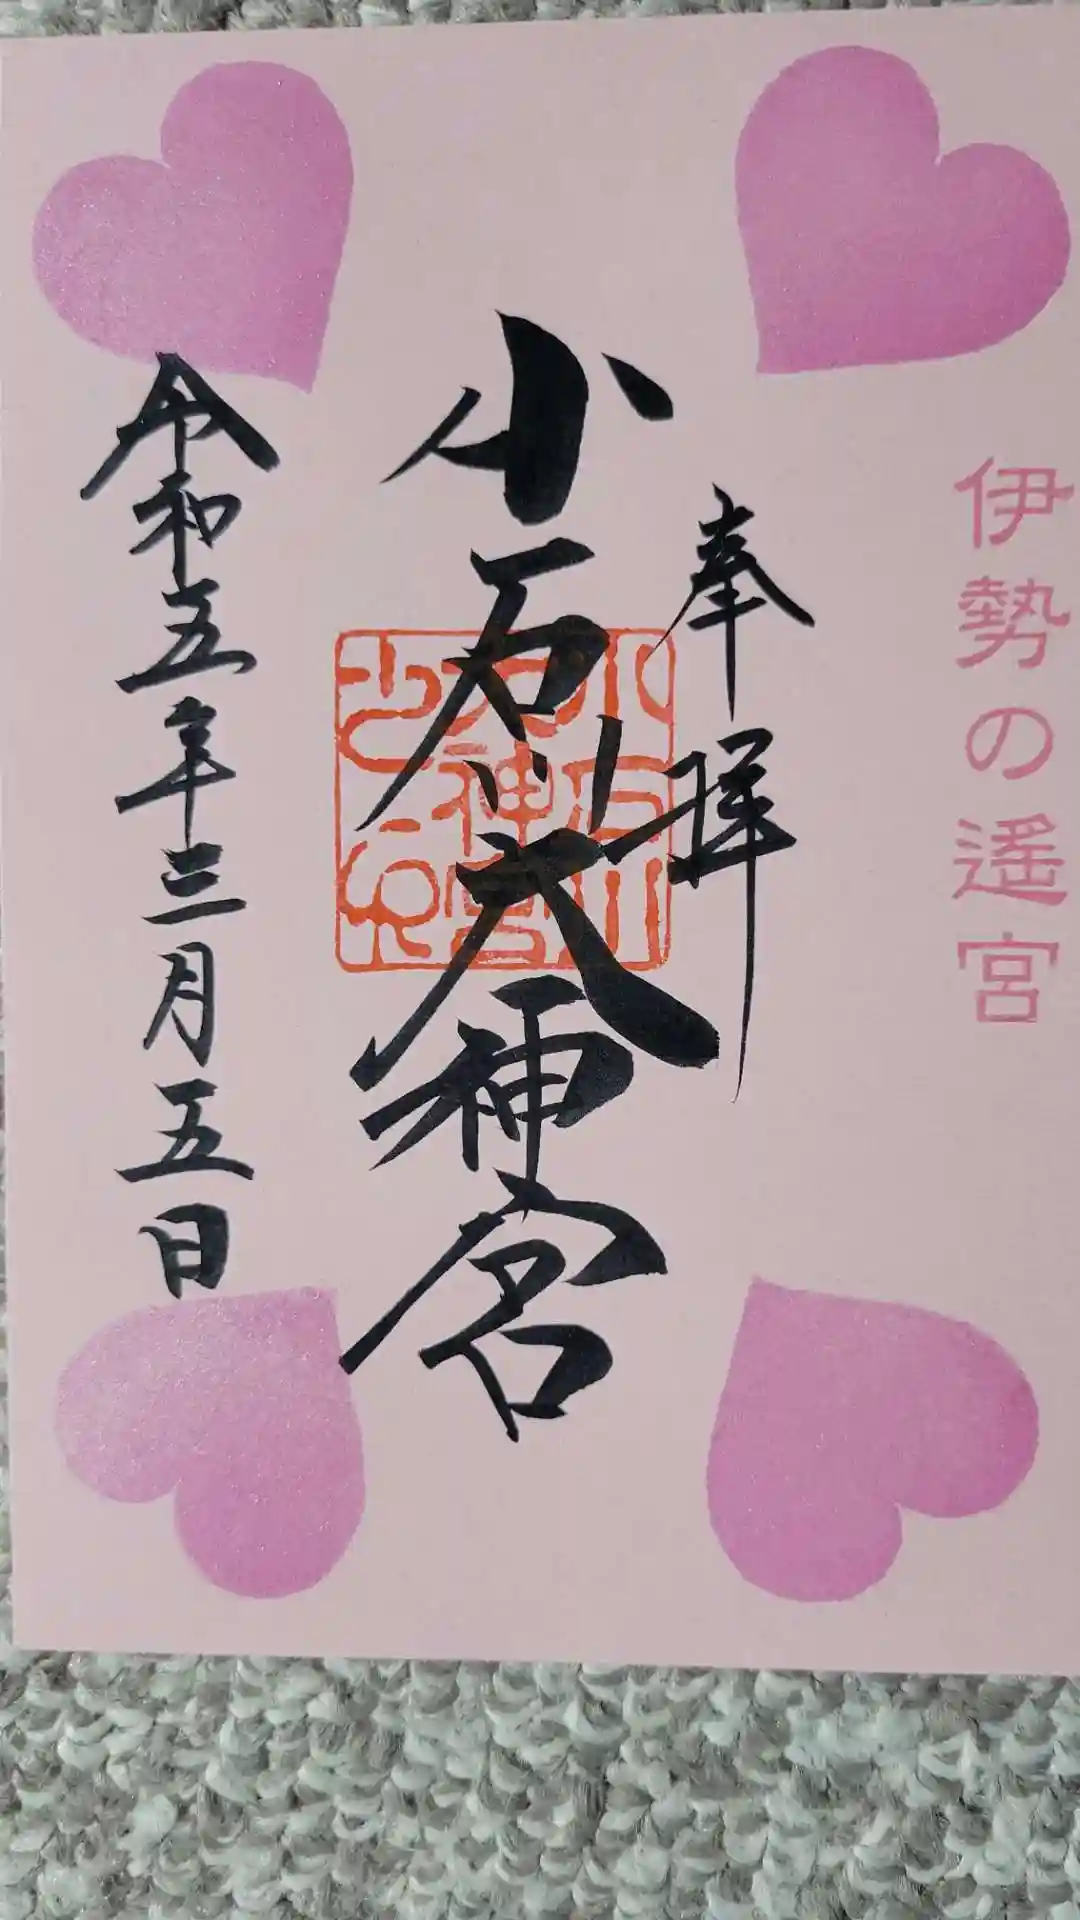 伊勢の遙宮
奉拝
小石川大神宮
小石川
大神宮
之印
令和五年三月五日